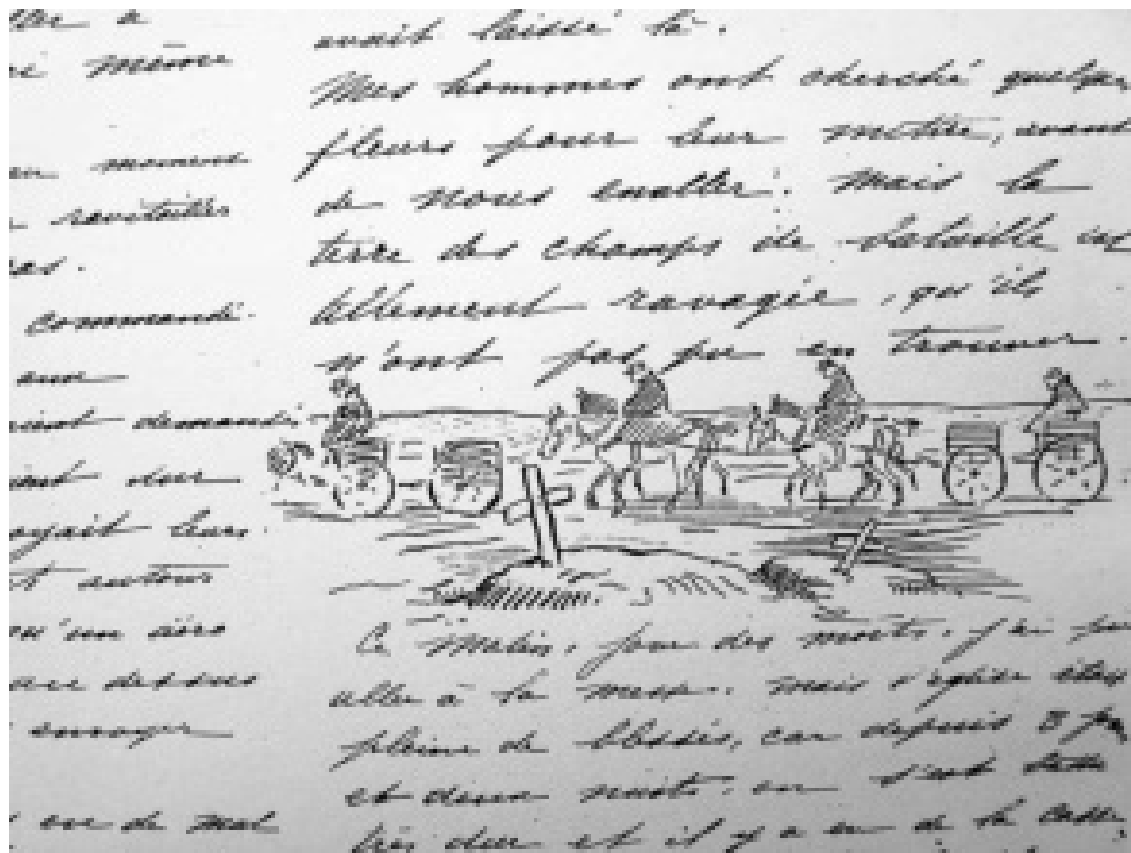 ri même
au moment
ravitailler
commandi-
aux
aient demandé
autour
qu'un aéro
au dessus
envoyer
eu de mal
avait laissé là.
Mes hommes ont cherché quelques
fleurs pour leur , avant
de nous enaller. Mais la
terre des champs de bataille est
tellement ravagée, qu'ils
n'ont pas pu en trouver.
Ce matin, jour des morts, j'ai pu
aller à la messe. Mais l'église était
pleine de blessés, car depuis
et deux nuits, on s'est battu
très dur et il y a eu de la casse,